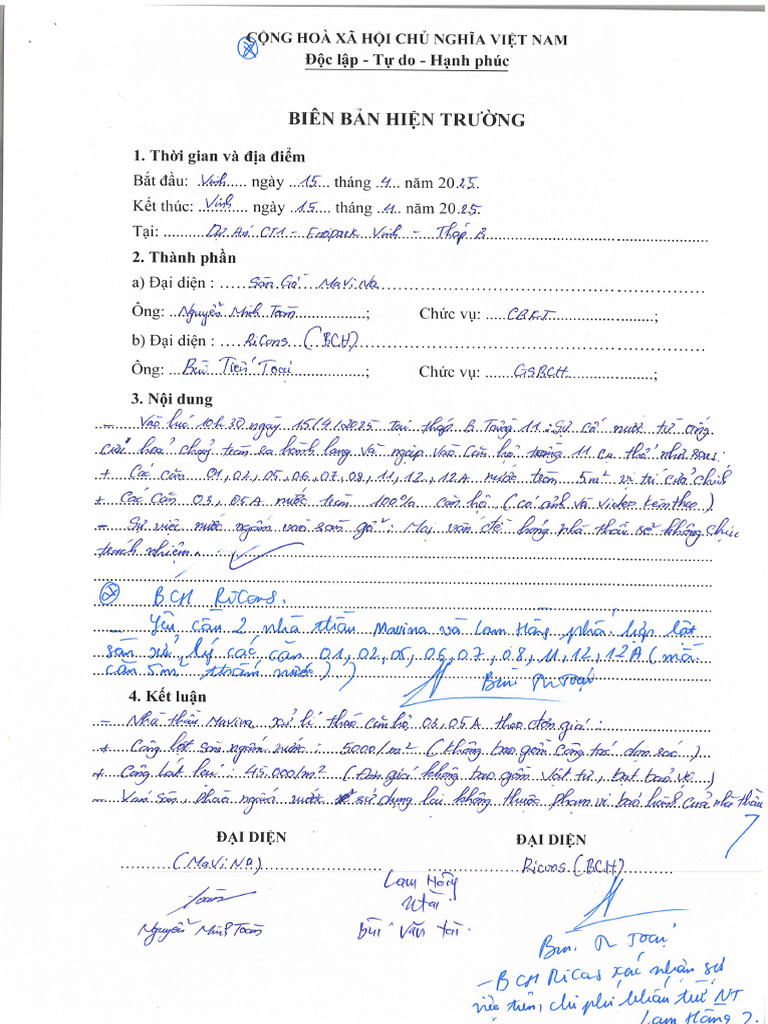 CỘNG HOÀ XÃ HỘI CHỦ NGHĨA VIỆT NAM
Độc lập - Tự do - Hạnh phúc
BIÊN BẢN HIỆN TRƯỜNG
1. Thời gian và địa điểm
Bắt đầu: Vinh ngày 15 tháng 4 năm 2025.
Kết thúc: Vinh ngày 15 tháng 4 năm 2025.
Tại: Dự Án CT1 - Ecopark Vinh - Tháp B
2. Thành phần
a) Đại diện : Sàn Gỗ MaViNa
Ông: Nguyễn Minh Toàn ; Chức vụ: CBKT ;
b) Đại diện : Ricons (BCH)
Ông: Bùi Tiến Toại ; Chức vụ: GSBCH ;
3. Nội dung
- Vào lúc 10h30 ngày 15/4/2025 tại tháp B Tầng 11: Sự cố nước từ ống
cứu hoả chảy tràn ra hành lang và ngập vào căn hộ tầng 11 cụ thể như sau:
+ Các căn 01, 02, 05, 06, 07, 08, 11, 12, 12A nước tràn 5m² vị trí cửa chính
+ Các căn 03, 05A nước tràn 100% căn hộ (có ảnh và video kèm theo)
- Sự việc nước ngấm vào sàn gỗ: Mọi vấn đề hỏng nhà thầu sẽ không chịu
trách nhiệm.
BCH Ricons.
- Yêu cầu 2 nhà thầu Mavina và Lam Hồng phối hợp lật
sàn xử lý các căn 01, 02, 05, 06, 07, 08, 11, 12, 12A (mỗi
căn 5m² thấm nước)
Bùi T Toại
4. Kết luận
- Nhà thầu Mavina xử lí tháo căn hộ 03, 05A theo đơn giá :
+ Công lột sàn ngấm nước : 5000/m² (không bao gồm công tác dọn rác)
+ Công lát lại : 45.000/m² (Đơn giá không bao gồm vật tư, bạt bảo vệ)
- Ván sàn, phào ngấm nước sử dụng lại không thuộc phạm vi bảo hành của nhà thầu
ĐẠI DIỆN ĐẠI DIỆN
(MaViNa) Ricons (BCH)
Lam Hồng
Toàn
Nguyễn Minh Toàn
Bùi Văn Tài
Bùi T Toại
- BCH Ricons xác nhận sự
việc trên, chi phí khấu trừ NT
Lam Hồng